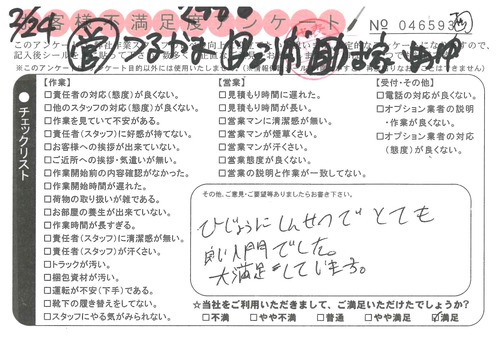 3/24
お客様不満足度アンケート
No 046593
チェックリスト
【作業】
□責任者の対応(態度)が良くない。
□他のスタッフの対応(態度)が良くない。
□作業を見ていて不安がある。
□責任者(スタッフ)に好感が持てない。
□お客様への挨拶が出来ていない。
□ご近所への挨拶・気遣いが無い。
□作業開始前の内容確認がなかった。
□作業開始時間が遅れた。
□荷物の取り扱いが雑である。
□お部屋の養生が出来ていない。
□作業時間が長すぎる。
□責任者(スタッフ)に清潔感が無い。
□責任者(スタッフ)が汗くさい。
□トラックが汚い。
□梱包資材が汚い。
□運転が不安(下手)である。
□靴下の履き替えをしてない。
□スタッフにやる気がみられない。
【営業】
□見積もり時間に遅れた。
□見積もり時間が長い。
□営業マンに清潔感が無い。
□営業マンが煙草くさい。
□営業マンが汗くさい。
□営業態度が良くない。
□営業の説明と作業が一致してない。
【受付・その他】
□電話の対応が良くない。
□オプション業者の説明
・作業が良くない。
□オプション業者の対応
(態度)が良くない。
その他、ご意見・ご要望等ありましたらお書き下さい。
ひじょうにしんせつでとても
良い人間でした。
大満足しています。
☆当社をご利用いただきまして、ご満足いただけたでしょうか?
□不満 □やや不満 □普通 □やや満足 ☑満足